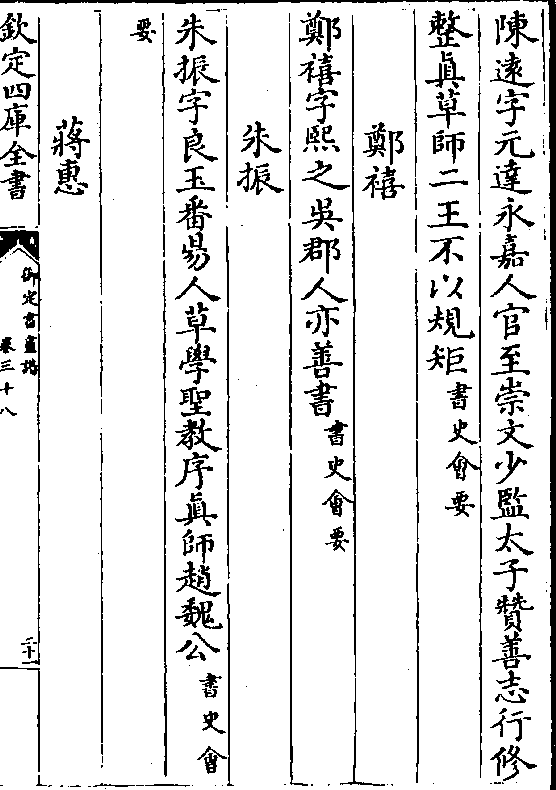 陳遠字元達永嘉人官至崇文少監太子贊善志行修
整真草師二王不以規矩書史會要
鄭禧
鄭禧字熙之吳郡人亦善書書史會要
朱振
朱振字良玉番昜人草學聖教序真師趙魏公書史會
要
蔣惠
欽定四庫全書
御定書畫譜
卷三十八
二十一